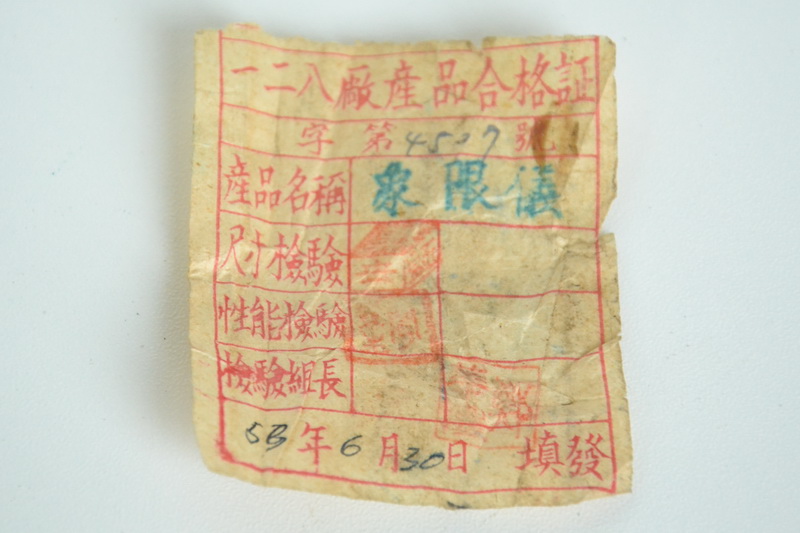 一二八廠產品合格証
字 第4507號
產品名稱 象限儀
尺寸檢驗
性能檢驗
檢驗組長
53年6月30日 填發